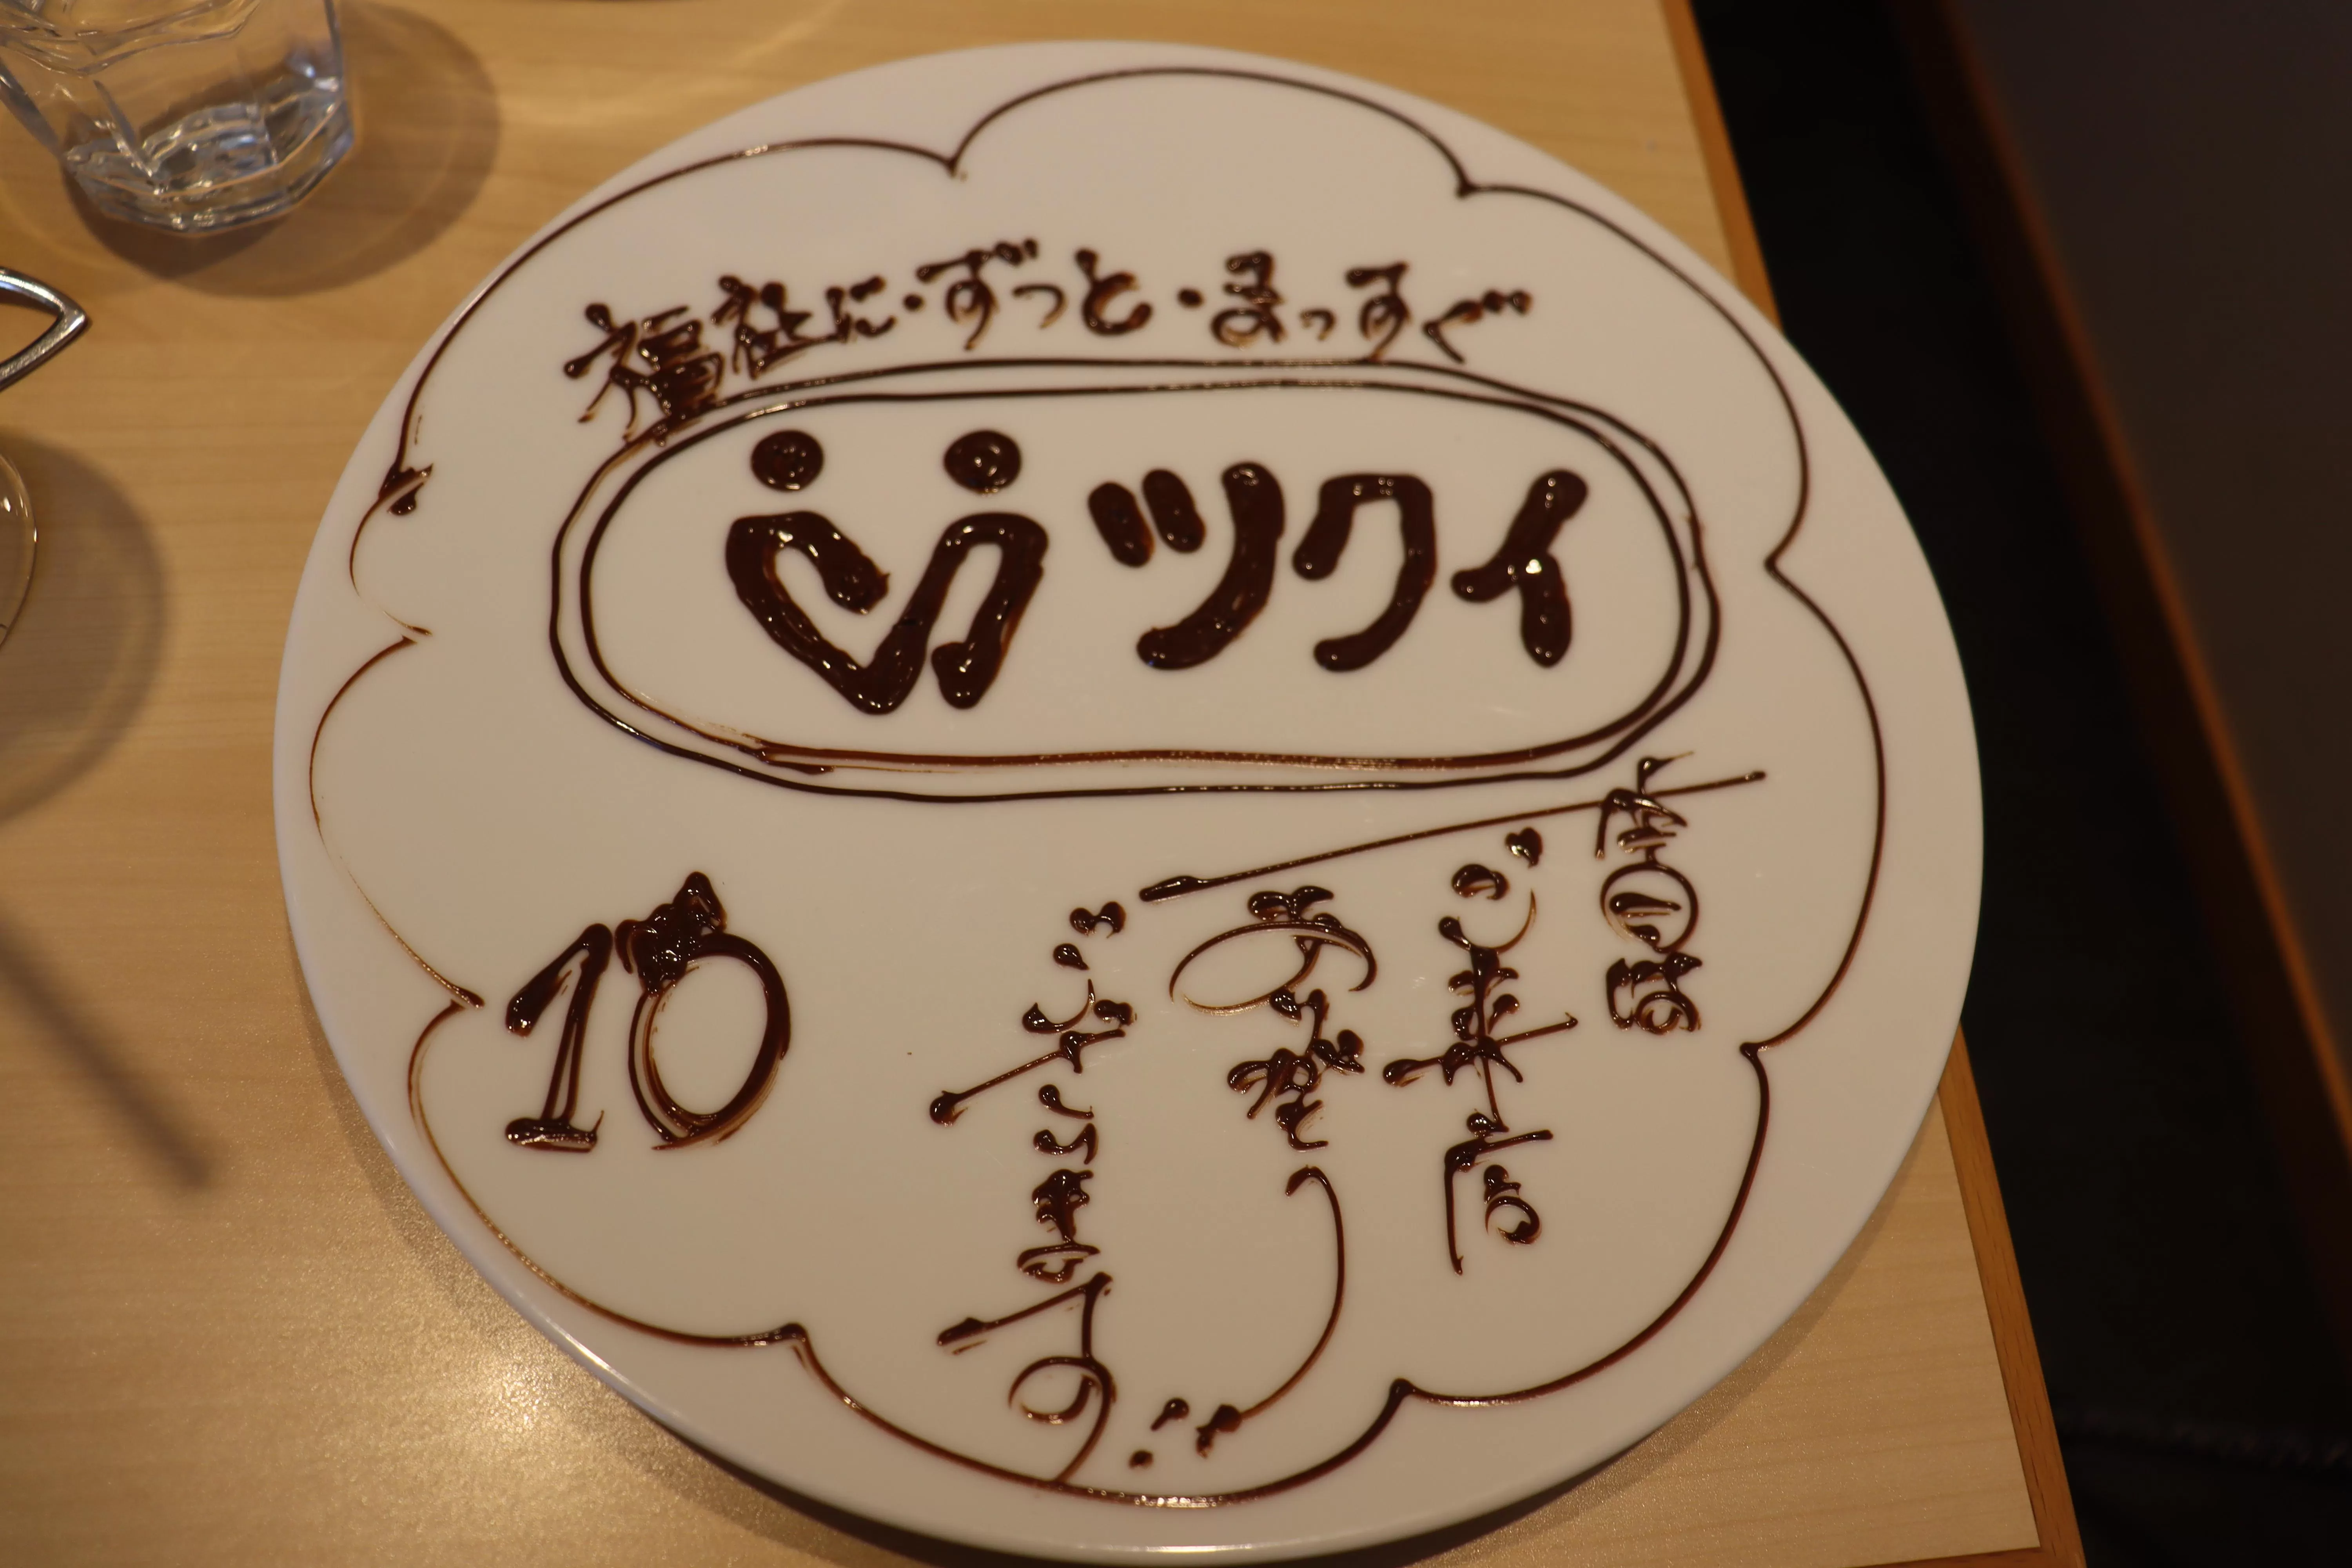 福祉に・ずっと・まっすぐ
ツクイ
本日は
ご来店
ありがとう
ございます
10